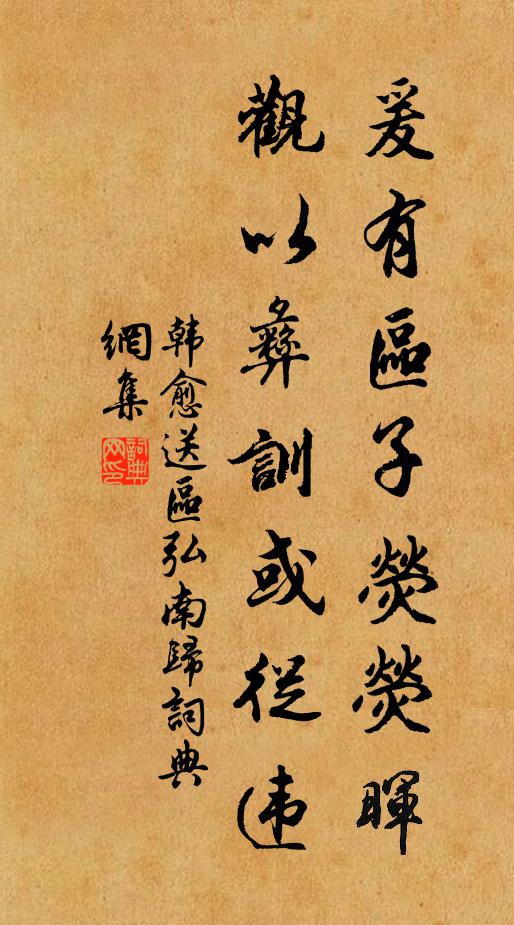 爰有區子熒熒暉
觀以彝訓或從违
韩愈送區弘南歸詞典
網集
詞典
网印